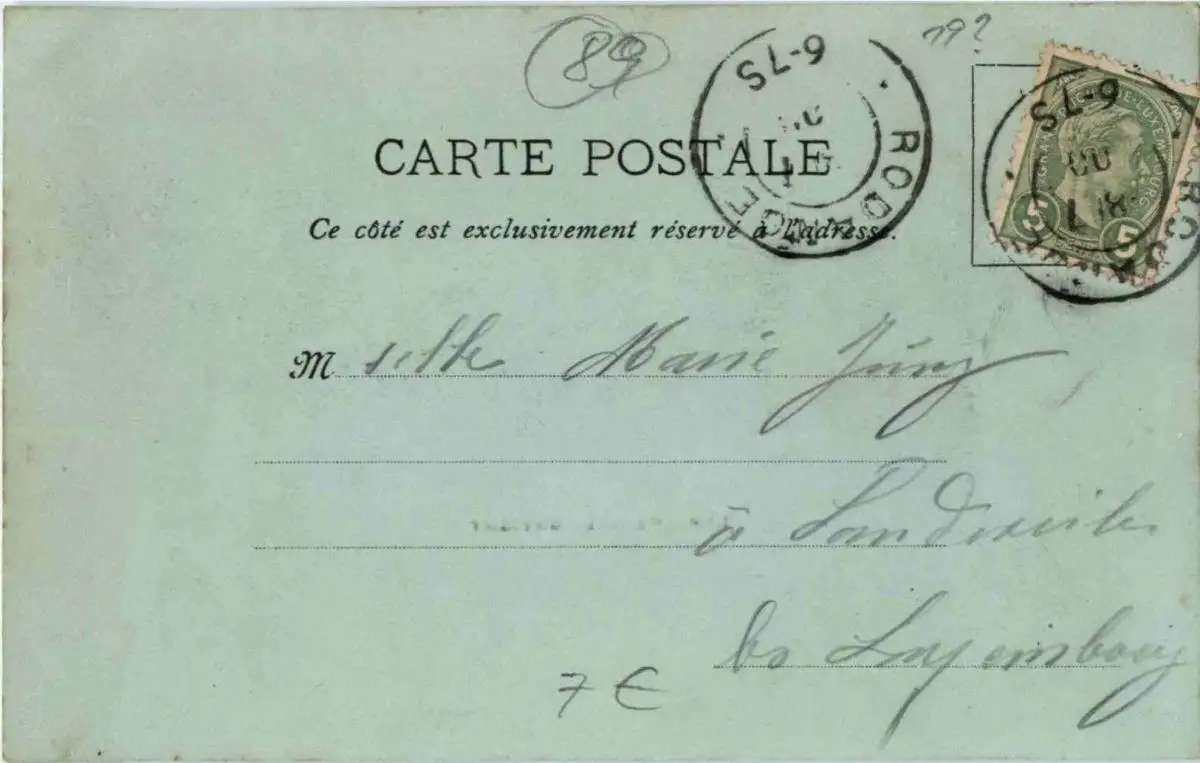 89
19?
6-7S
RODANGE
GRAND DUCHÉ DE LUXEMBOURG
5 5
6-7S
RODANGE
CARTE POSTALE
Ce côté est exclusivement réservé à l'adresse.
Mselle Marie Jüng
à
Luxembourg
7 €